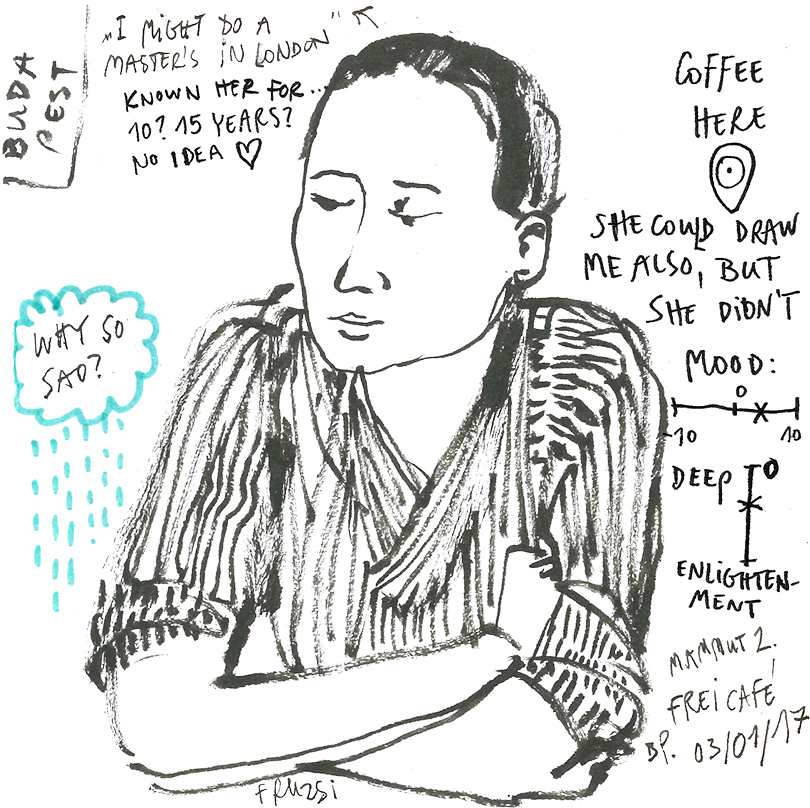 BUDA
PEST
„I MIGHT DO A
MASTER'S IN LONDON"
KNOWN HER FOR...
10? 15 YEARS?
NO IDEA ♡
COFFEE
HERE
SHE COULD DRAW
ME ALSO, BUT
SHE DIDN'T
MOOD:
0
-10 10
WHY SO
SAD?
DEEP 0
ENLIGHTEN-
MENT
MAMMUT 2.
FREI CAFÉ
BP. 03/01/17
FRUZSI